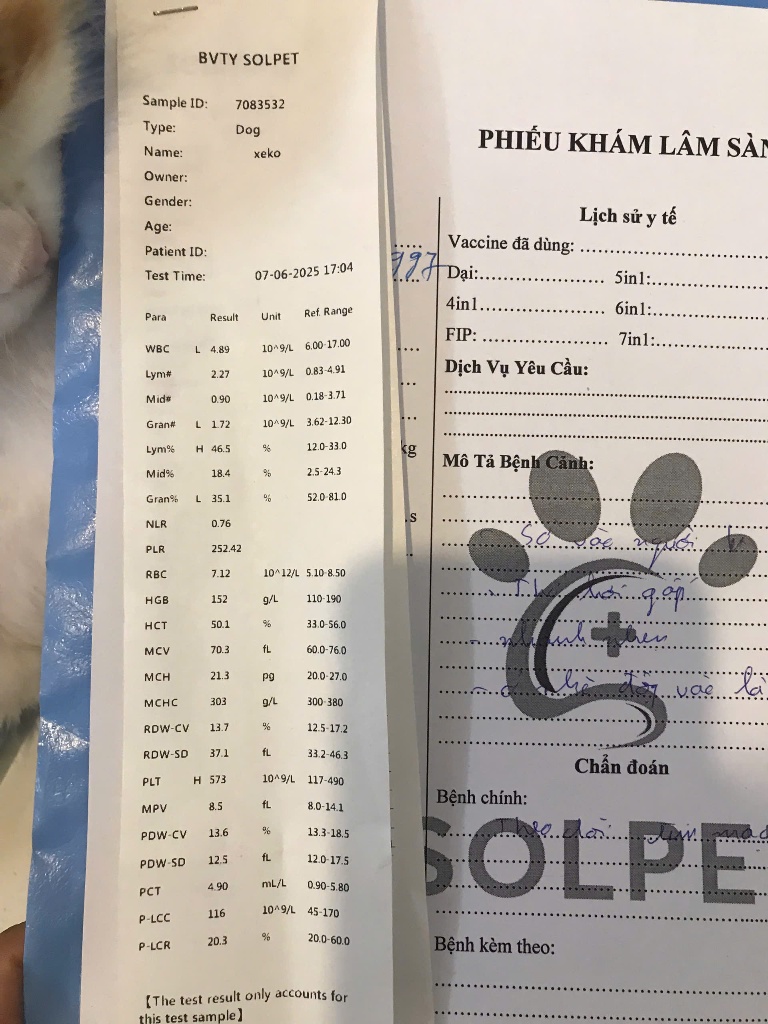 BVTY SOLPET
Sample ID: 7083532
Type: Dog
Name: xeko
Owner:
Gender:
Age:
Patient ID:
Test Time: 07-06-2025 17:04
Para Result Unit Ref. Range
WBC L 4.89 10^9/L 6.00-17.00
Lym# 2.27 10^9/L 0.83-4.91
Mid# 0.90 10^9/L 0.18-3.71
Gran# L 1.72 10^9/L 3.62-12.30
Lym% H 46.5 % 12.0-33.0
Mid% 18.4 % 2.5-24.3
Gran% L 35.1 % 52.0-81.0
NLR 0.76
PLR 252.42
RBC 7.12 10^12/L 5.10-8.50
HGB 152 g/L 110-190
HCT 50.1 % 33.0-56.0
MCV 70.3 fL 60.0-76.0
MCH 21.3 pg 20.0-27.0
MCHC 303 g/L 300-380
RDW-CV 13.7 % 12.5-17.2
RDW-SD 37.1 fL 33.2-46.3
PLT H 573 10^9/L 117-490
MPV 8.5 fL 8.0-14.1
PDW-CV 13.6 % 13.3-18.5
PDW-SD 12.5 fL 12.0-17.5
PCT 4.90 mL/L 0.90-5.80
P-LCC 116 10^9/L 45-170
P-LCR 20.3 % 20.0-60.0
【The test result only accounts for
this test sample】
PHIẾU KHÁM LÂM
Lịch sử y tế
997
Vaccine đã dùng:
Dại: 5in1:
4in1 6in1:
FIP: 7in1:
Dịch Vụ Yêu Cầu:
kg
Mô Tả Bệnh Cảnh:
Sờ vào người
- Thở hơi gấp
- nhanh nhẹn
vào là
Chẩn đoán
Bệnh chính:
Theo dõi tim
SOLPE
Bệnh kèm theo: